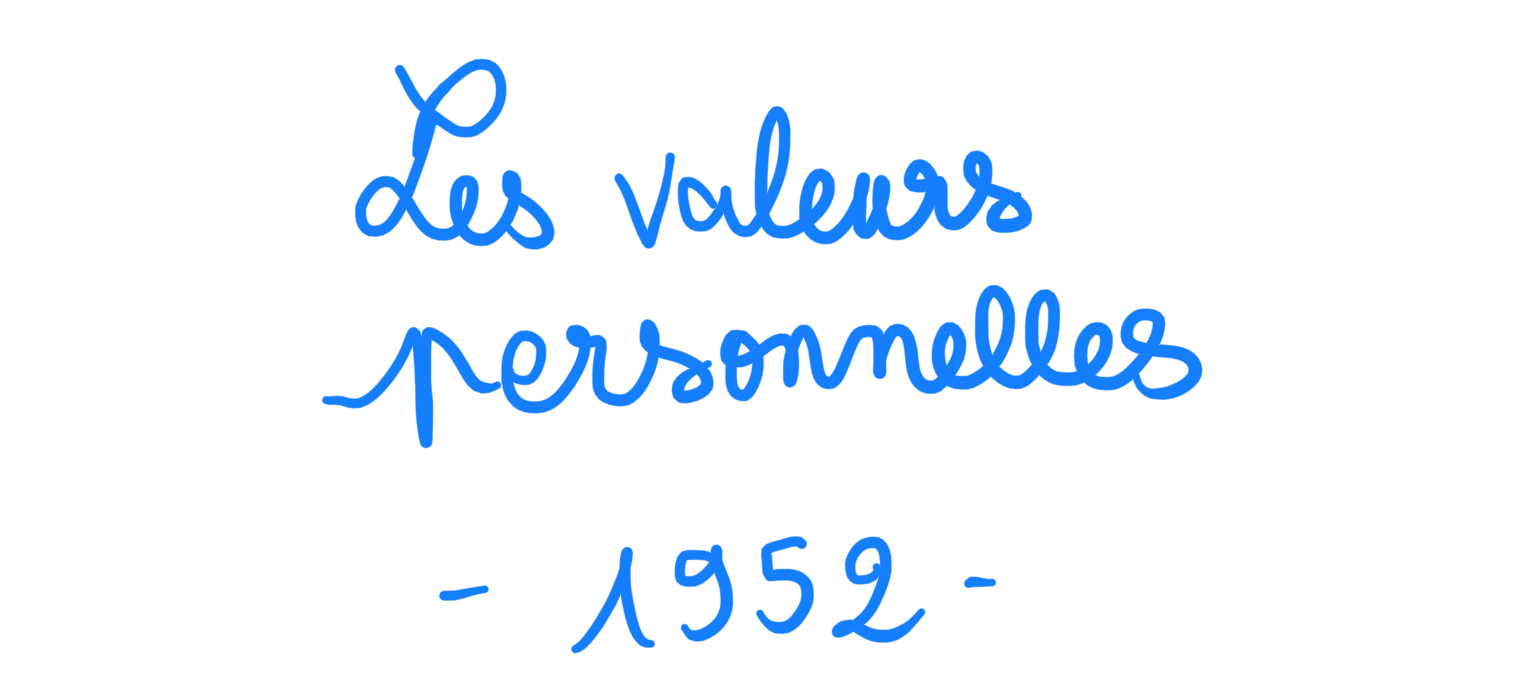 Les valeurs
personnelles
- 1952 -